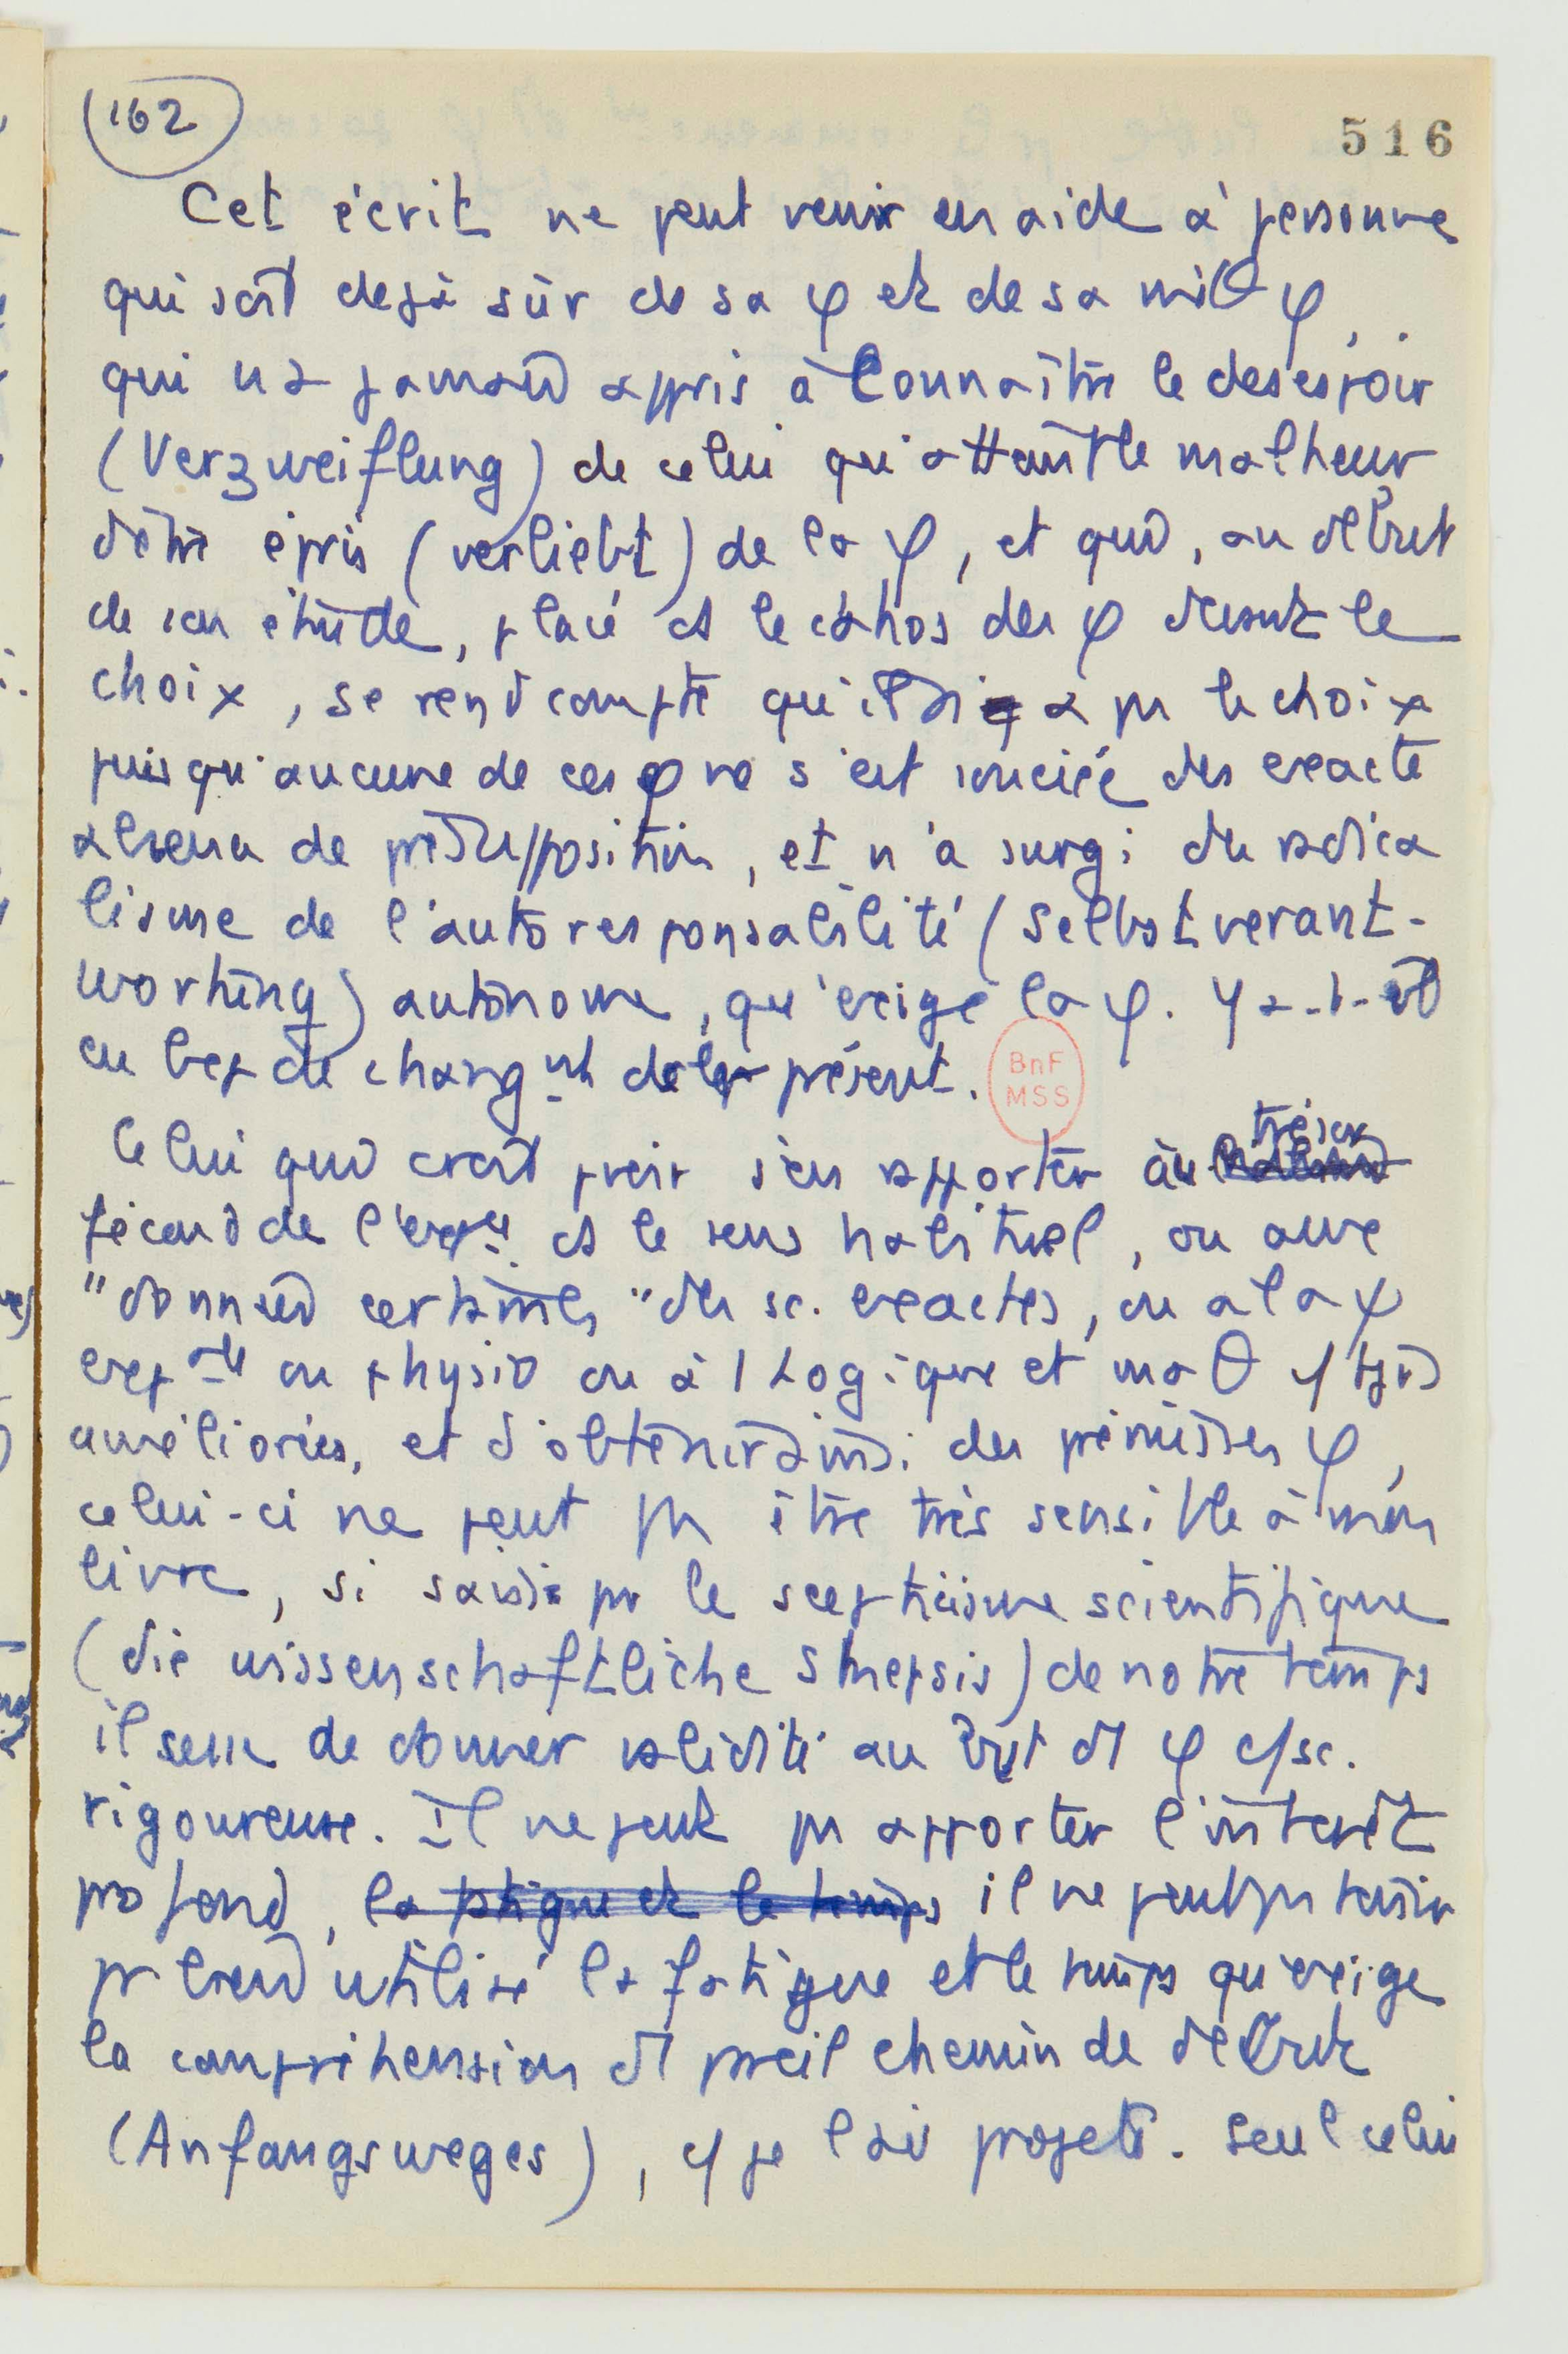 162
516
Cet écrit ne peut venir en aide à personne
qui soit dejà sûr de sa φ et de sa miθ φ,
qui n'a jamais appris à Connaître le desespoir
(Verzweiflung) de celui qu'atteint le malheur
d'être épris (verliebt) de la φ, et qui, au début
de son étude, placé ds le cahos des φ devant le
choix, se rend compte qu'il n'a pas le choix
puisqu'aucune de ces φ ne s'est souciée des exacte
absence de présupposition, et n'a surgi du radica
lisme de l'autoresponsabilité (Selbstverant-
wortung) autonome, qu'exige la φ. Y a-t-il
eu bep de changnt de présent.
BnF
MSS
Celui qui croit pvoir s'en rapporter au trésor
fécond de l'expce ds le sens habituel, ou aux
"données certaines" des sc. exactes, ou a la ψ
expale ou physio ou à 1 Logique et maθ
améliorées, et d'obtenir ainsi des prémisses φ,
celui-ci ne peut pas être très sensible à mon
livre, si saisi par le scepticisme scientifique
(die wissenschaftliche Skepsis) de notre temps
il de donner validité au but d' φ c/sc.
rigoureuse. Il ne peut pas apporter l'intérêt
profond, la fatigue et le temps il ne peut pas tenir
pr bien utilisé la fatigue et le temps qu'exige
la compréhension d' pareil chemin de début
(Anfangsweges), c/ je l'ai projeté. Seul celui